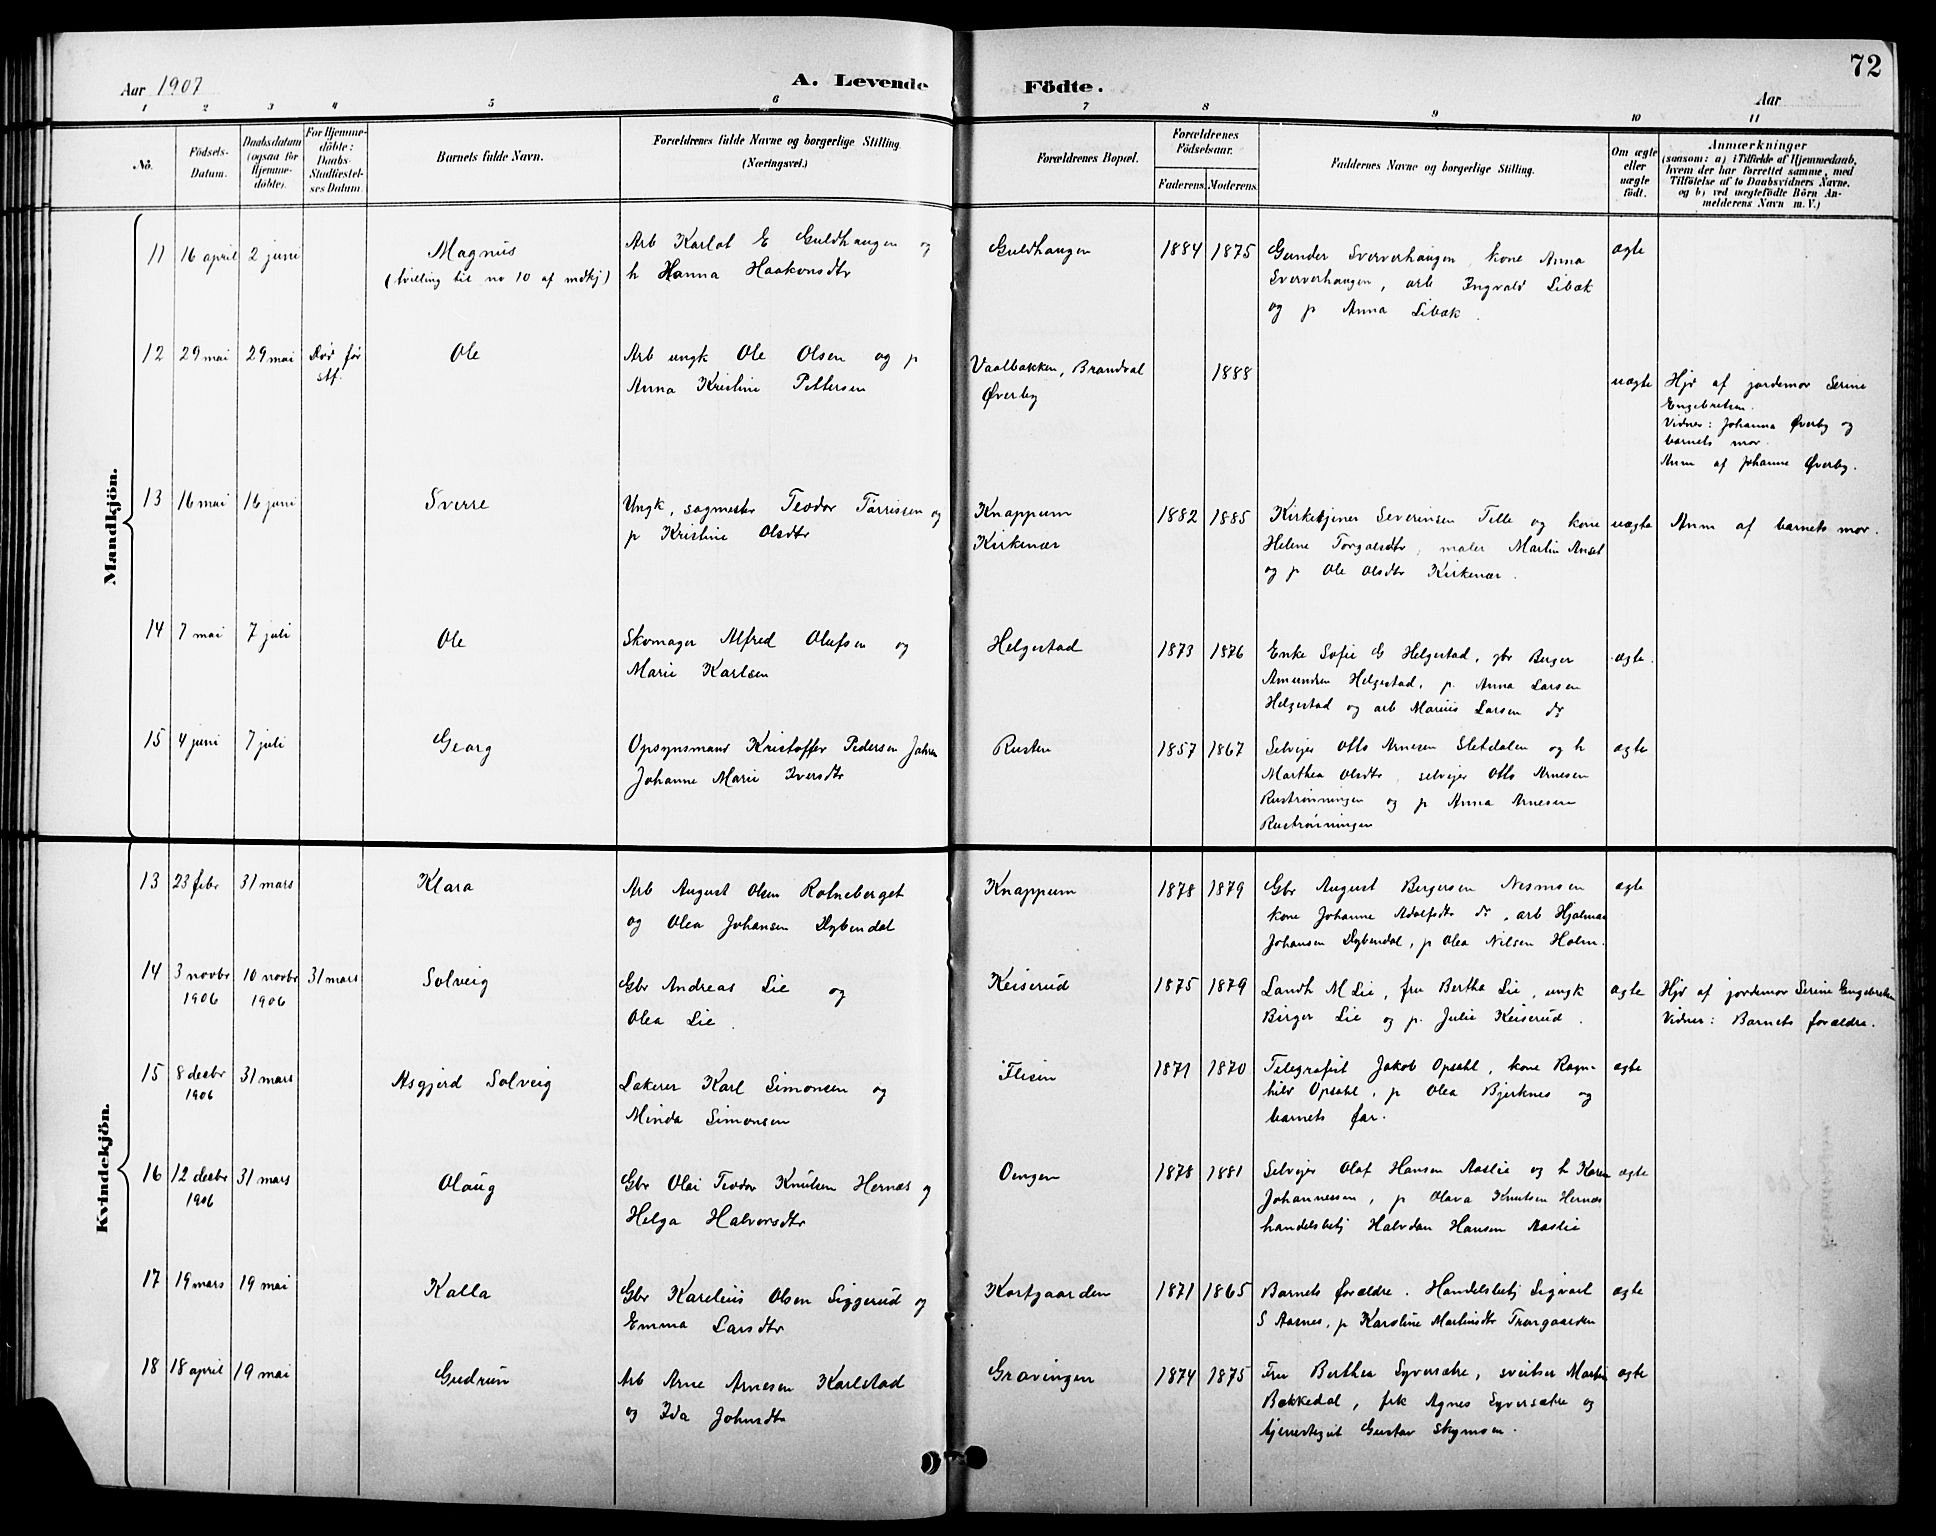 Aar 1907
A. Levende
Födte.
72
Aar
1 2 3 4 5 6 7 8 9 10 11
No.
Födsels-
Datum.
Daabsdatum
(ogsaa for
Hjemme-
döbte).
For Hjemme-
döbte:
Daabs-
Stadfæstel-
ses Datum.
Barnets fulde Navn.
Forældrenes fulde Navne og borgerlige Stilling
(Næringsvei.)
Forældrenes Bopæl.
Forældrenes
Födselsaar.
Faderens.
Moderens.
Faddernes Navne og borgerlige Stilling.
Om ægte
eller
uægte
födt.
Anmærkninger
(saasom: a) i Tilfælde af Hjemmedaab,
hvem der har forrettet samme, med
Tilföielse af to Daabsvidners Navne.
og b) ved uægtefödte Börn An-
melderens Navn m. V.)
Mandkjön.
11 16 april 2 juni
Magnus
(tvilling til no 10 af mdkj)
Arb Karlot E Guldhaugen og
h Hanna Haakonsdtr
Guldhaugen
1884 1875
Gunder Sververhaugen, kone Anna
Sververhaugen, arb Ingvald Libæk
og p Anna Libæk.
ægte
12 29 mai 29 mai
Død før
stf.
Ole
Arb ungk Ole Olsen og p
Anna Kristine Pettersen
Vaalbakken, Brandval
Øverby
1888
uægte
Hjd af jordemor Serine
Engebretsen.
Vidner: Johanna Øverby og
barnets mor.
Anm af Johanne Øverby.
13 16 mai 16 juni
Sverre
Ungk, sagmester Teodor Tørrissen og
p Kristine Olsdtr
Knappum
Kirkenær
1882 1885
Kirketjener Severinsen Tille og kone
Helene Torgalsdtr, maler Martin Anset
og p Ole Olsdtr Kirkenær.
uægte
Anm af barnets mor.
14 7 mai 7 juli
Ole
Skomager Alfred Olufsen og
Marie Karlsen
Helgestad
1873 1876
Enke Sofie G Helgestad, gbr Berger
Amundsen Helgestad, p. Anna Larsen
Helgestad og arb Marius Larsen ds
ægte.
15 4 juni 7 juli
Georg
Opsynsmand Kristoffer Pedersen Jahren
Johanne Marie Iversdtr
Rusten
1857 1867
Selveier Otto Arnesen Sletdalen og h
Marthea Olsdtr, selveier Otto Arnesen
Rustrønningen og p Anna Arnesen
Rustrønningen
ægte
Kvindekjön.
13 23 febr 31 mars
Klara
Arb August Olsen Rotneberget
og Olea Johansen Dybendal
Knappum
1878 1879
Gbr August Bergersen Nesmoen
kone Johanne Adolfsdtr ds, arb Hjalmar
Johansen Dybendal, p Olea Nilsen Holm.
ægte
14 3 novbr 10 novbr 31 mars
1906 1906
Solveig
Gbr Andreas Lie og
Olea Lie.
Keiserud
1875 1879
Landh M Lie, fru Bertha Lie, ungk
Birger Lie og p. Julie Keiserud.
ægte
Hjd af jordemor Serine Engebretsen
Vidner: Barnets forældre.
15 8 decbr 31 mars
1906
Asgjerd Solveig
Lakerer Karl Simonsen og
Minda Simonsen
Flisen
1871 1870
Telegrafist Jakob Opsahl, kone Ragn-
hild Opsahl, p Olea Bjerknes og
barnets far.
ægte
16 12 decbr 31 mars
1906
Olaug
Gbr Olai Teodor Knutsen Hernæs og
Helga Halvorsdtr
Oengen
1878 1881
Selveier Olaf Hansen Aaslie og h Karen
Johannessen, p Olava Knutsen Hernæs
handelsbetj Halvdan Hansen Aaslie
ægte
17 19 mars 19 mai
Kalla
Gbr Karelius Olsen Siggerud og
Emma Larsdtr
Kortgaarden
1871 1865
Barnets forældre. Handelsbetj Sigvart
S Aasnes, p Karoline Martinsdtr Trorgaarden
ægte
18 18 april 19 mai
Gudrun
Arb Arne Arnesen Karlstad
og Ida Johnsdtr
Gravingen
1874 1875
Fru Berthea Syversætre, sveitser Martin
Bakkedal, frk Agnes Syversætre og
tjenestegut Gustav Skymoen.
ægte